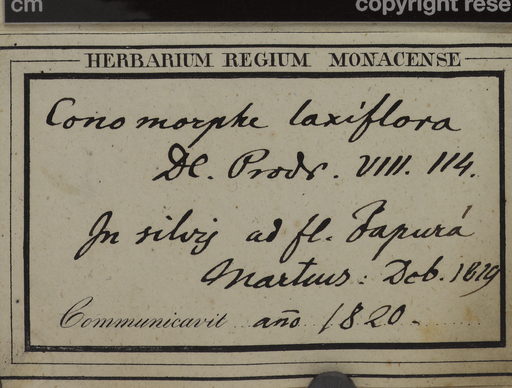 cm copyright rese
HERBARIUM REGIUM MONACENSE
Conomorphe laxiflora
DC. Prodr. VIII. 114.
In silvis ad fl. Japurá
Martius. Dcb. 1819
Communicavit año 1820.